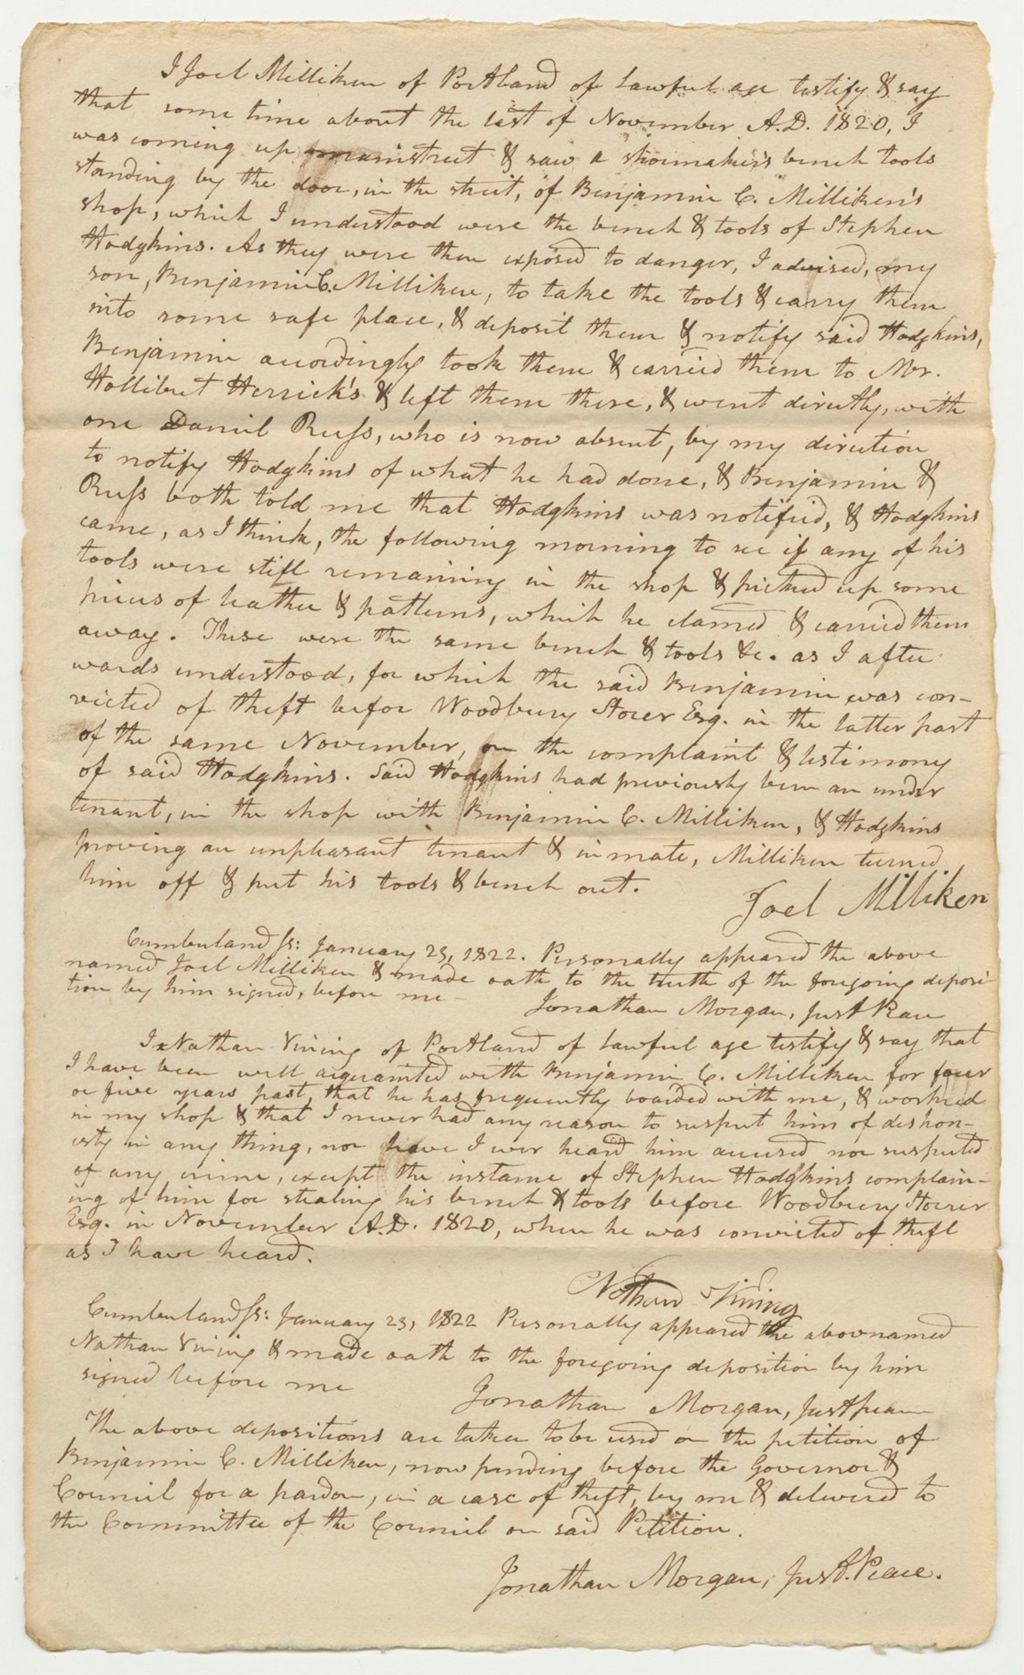 I Joel Milliken of Portland of lawful age testify & say
that some time about the last of November A.D. 1820, I
was coming up mainstreet & saw a shoemaker's bench tools
standing by the door, in the street, of Benjamin C. Milliken's
shop, which I understood were the bench & tools of Stephen
Hodgkins. As they were then exposed to danger, I advised, my
son, Benjamin C. Milliken, to take the tools & carry them
into some safe place, & deposit them & notify said Hodgkins,
Benjamin accordingly took them & carried them to Mr.
Hollibert Herrick's & left them there, & went directly, with
one Daniel Russ, who is now absent, by my direction
to notify Hodgkins of what he had done, & Benjamin &
Russ both told me that Hodgkins was notified, & Hodgkins
came, as I think, the following morning to see if any of his
tools were still remaining in the shop & picked up some
pieces of leather & patterns, which he clamed & carried them
away. These were the same bench & tools &c. as I after
wards understood, for which the said Benjamin was con-
victed of theft before Woodbury Storer Esq. in the latter part
of the same November, on the complaint & testimony
of said Hodgkins. Said Hodgkins had previously been an under
tenant, in the shop with Benjamin C. Milliken, & Hodgkins
proving an unpleasant tenant & inmate, Milliken turned
him off & put his tools & bench out.
Joel Milliken
Cumberland ss: January 23, 1822. Personally appeared the above
named Joel Milliken & made oath to the truth of the foregoing deposi-
tion by him signed, before me -
Jonathan Morgan, Just Peace
I Nathan Vining of Portland of lawful age testify & say that
I have been well acquainted with Benjamin C. Milliken for four
or five years past, that he has frequently boarded with me, & worked
in my shop & that I never had any reason to suspect him of dishon-
esty in any thing, nor have I ever heard him accused nor suspected
of any crime, except the instance of Stephen Hodgkins complain-
ing of him for stealing his bench & tools before Woodbury Storer
Esq. in November A.D. 1820, when he was convicted of theft
as I have heard.
Nathan Vining
Cumberland ss: January 23, 1822 Personally appeared the abovenamed
Nathan Vining & made oath to the foregoing deposition by him
signed before me
Jonathan Morgan, Just peace
The above depositions are taken to be used on the petition of
Benjamin C. Milliken, now pending before the Governor &
Council for a pardon, in a case of theft, by me & delivered to
the Committee of the Council on said Petition.
Jonathan Morgan, Just. Peace.